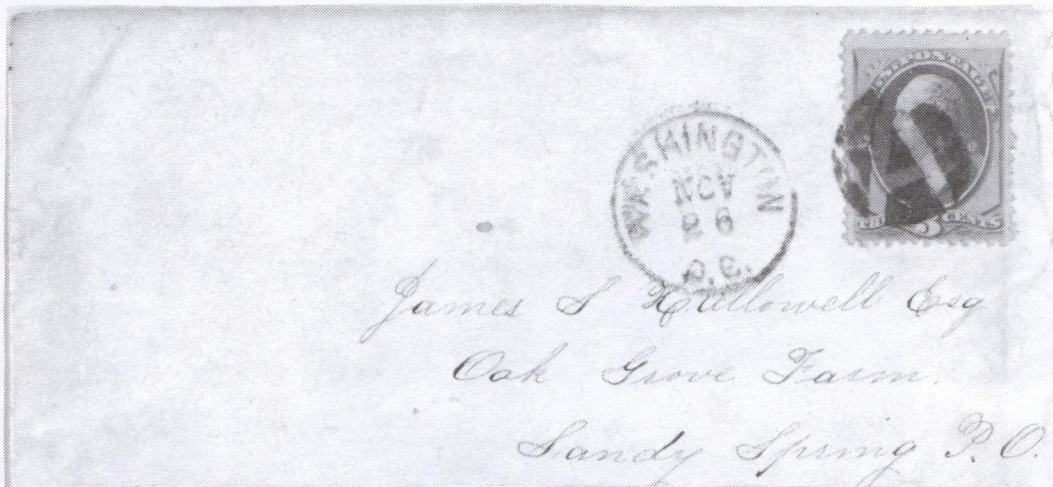 U.S. POSTAGE
WASHINGTON
NOV
26
D.C.
3 CENTS
James S Hallowell Esq
Oak Grove Farm.
Sandy Spring P.O.